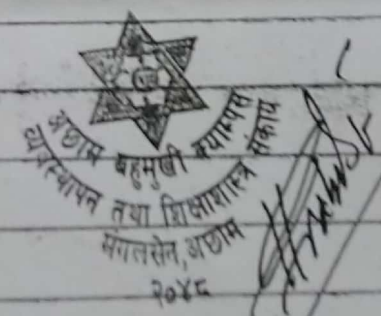 अछाम बहुमुखी क्याम्पस
व्यवस्थापन तथा शिक्षाशास्त्र संकाय
मंगलसेन, अछाम
२०४८